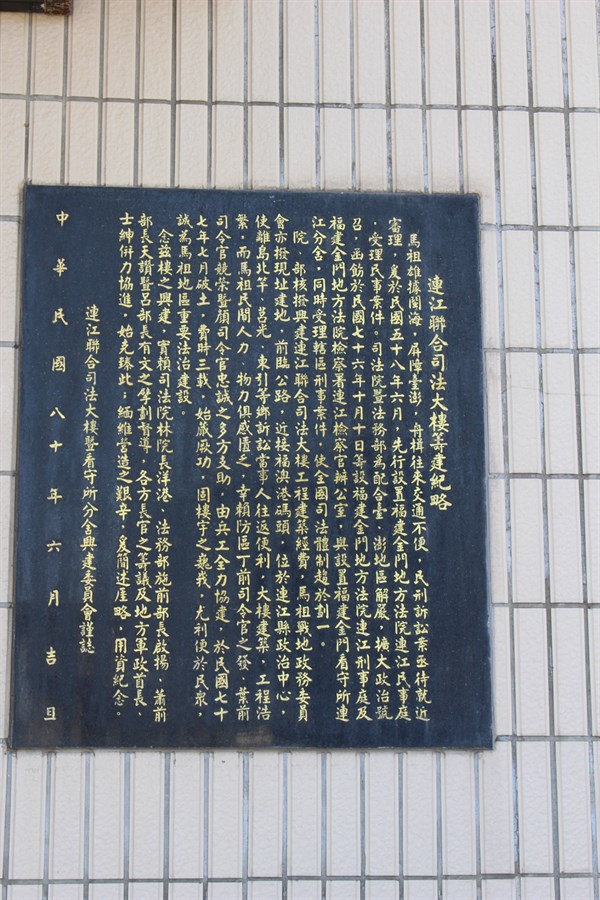 連江聯合司法大樓籌建紀略
馬祖雄據閩海，屏障臺澎，舟楫往來交通不便，民刑訴訟案亟待就近
審理，爰於民國五十八年六月，先行設置福建金門地方法院連江民事庭
，受理民事案件。司法院暨法務部為配合臺、澎地區解嚴、擴大政治號
召，函飭於民國七十六年十月十日籌設福建金門地方法院連江刑事庭及
福建金門地方法院檢察署連江檢察官辦公室，與設置福建金門看守所連
江分舍，同時受理轄區刑事案件，使全國司法體制趨於劃一。
院、部核撥興建連江聯合司法大樓工程建築經費，馬祖戰地政務委員
會亦撥現址建地，前臨公路，近接福澳港碼頭，位於連江縣政治中心，
使離島北竿、莒光、東引等鄉訴訟當事人往返便利，大樓建築，工程浩
繁，而馬祖民間人力、物力俱感匱乏，幸賴防區丁前司令官之發、葉前
司令官競榮暨顏司令官忠誠之多方支助，由兵工全力協建，於民國七十
七年七月破土，費時三載，始蕆厥功，固樓宇之巍峩，尤利便於民眾，
誠為馬祖地區重要法治建設。
念茲樓之興建，實賴司法院林院長洋港、法務部施前部長啟揚、蕭前
部長天讚暨呂部長有文之擘劃督導，各方長官之籌議及地方軍政首長、
士紳併力協進，始克臻此；緬維營造之艱辛，爰簡述厓略，用資紀念。
連江聯合司法大樓暨看守所分舍興建委員會謹誌
中華民國八十年六月吉旦